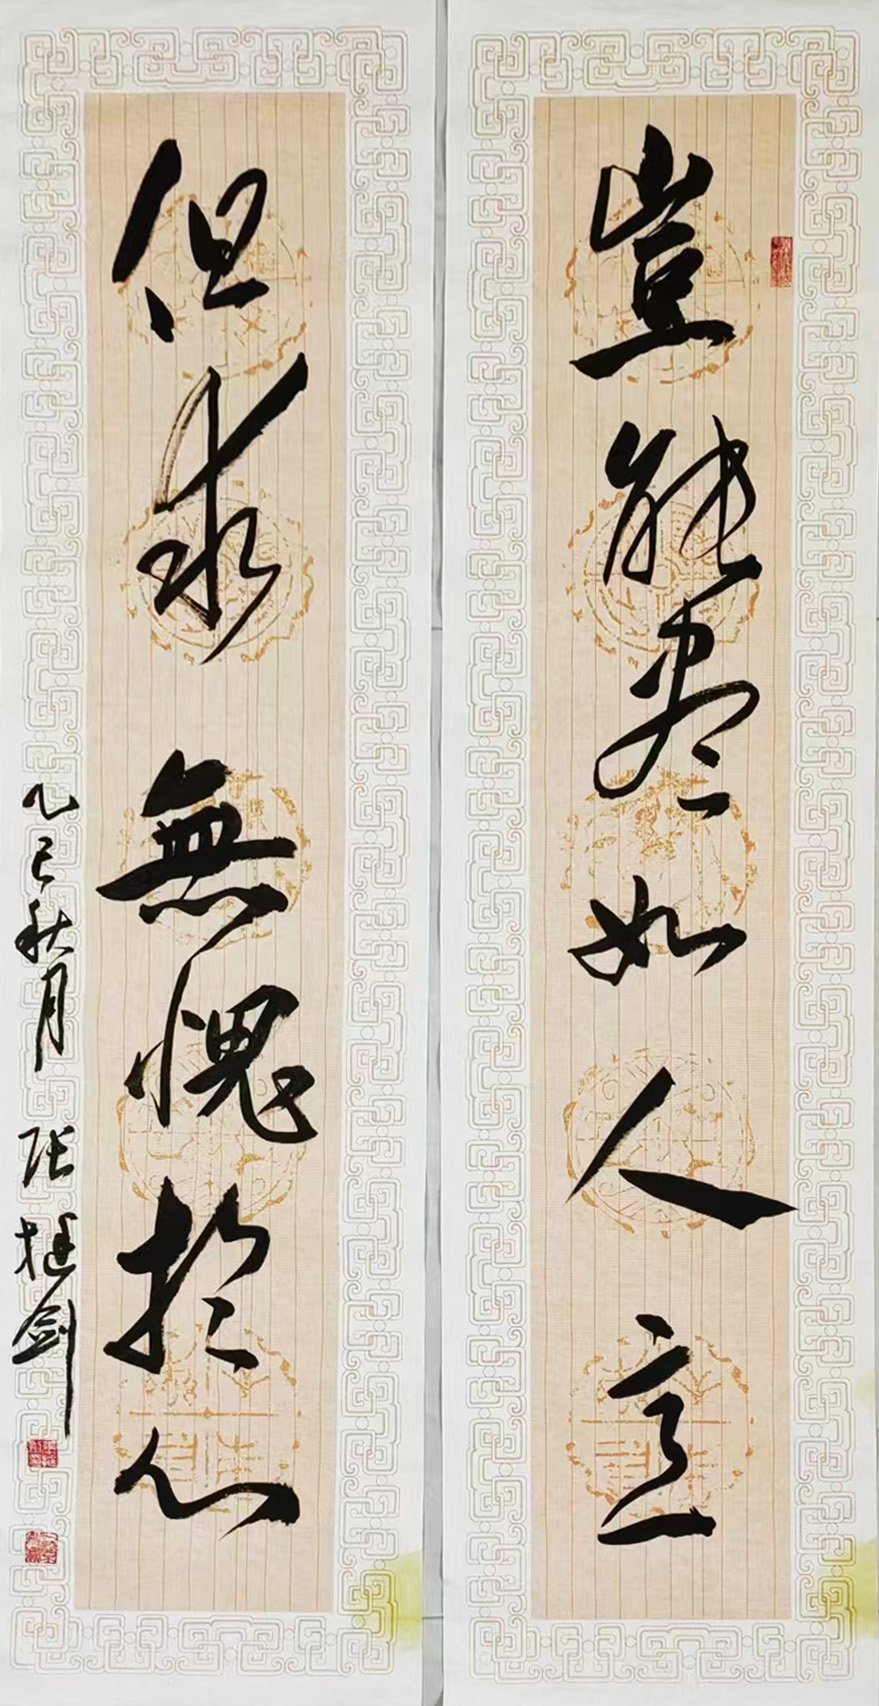 豈能盡如人意
但求無愧於心
乙巳秋月 张建剑